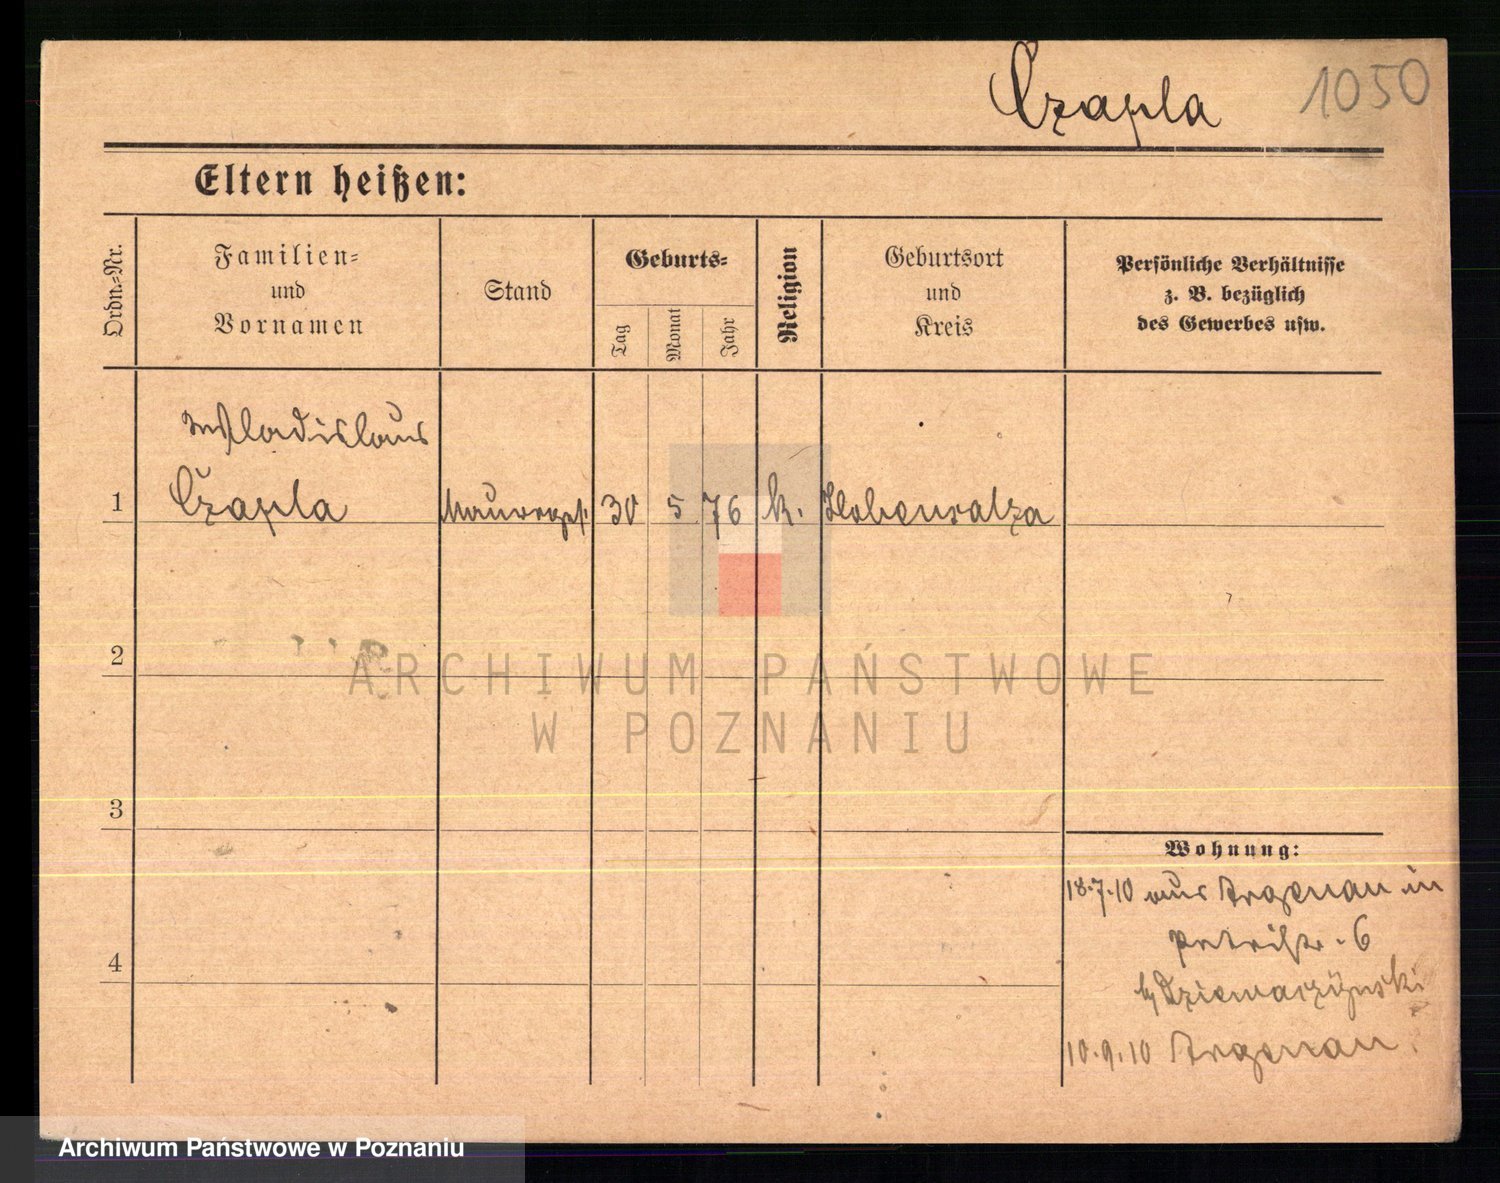 Czapla 1050
Eltern heißen:
Ordn.-Nr.
Familien-
und
Vornamen
Stand
Geburts-
Tag
Monat
Jahr
Religion
Geburtsort
und
Kreis
Persönliche Verhältnisse
z. B. bezüglich
des Gewerbes usw.
Wladislaus
1 Czapla Maurergs. 30 5 76 k. Hohensalza
2
3
4
Wohnung:
18.7.10 aus Argenau in
Petristr. 6
10.9.10 Argenau
ARCHIWUM PAŃSTWOWE
W POZNANIU
Archiwum Państwowe w Poznaniu